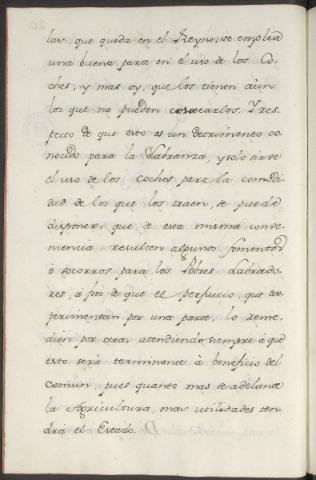 lar, que queda en el Reyno, se emplea
una buena parte en el uso de los Co-
ches, y mas oy, que los tienen aùn
los que no pueden costearlos. Y res
pecto de que esto es un detrimento co
nocido para la Labranza, y solo sirve
el uso de los coches para la comodi
dad de los que los traen, se puede
disponer, que de esta misma conve-
niencia resulten algunos fomentos
ò socorros para los Pobres Labrado-
res, à fin de que el perjuicio, que ex-
perimentan por una parte, lo reme-
dien por otra, atendiendo siempre à que
esto serà terminante à beneficio del
Comun, pues quanto mas se adelante
la Agricultura, mas utilidades ten
drá el Estado.